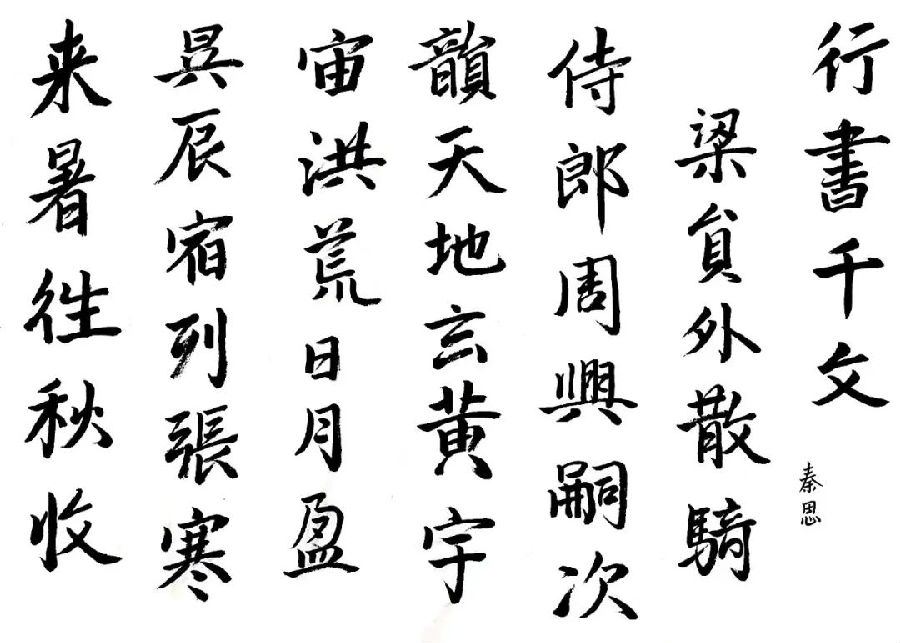 行書千文
秦思
梁負外散騎
侍郎周興嗣次
韻天地玄黃宇
宙洪荒日月盈
昃辰宿列張寒
来暑往秋收